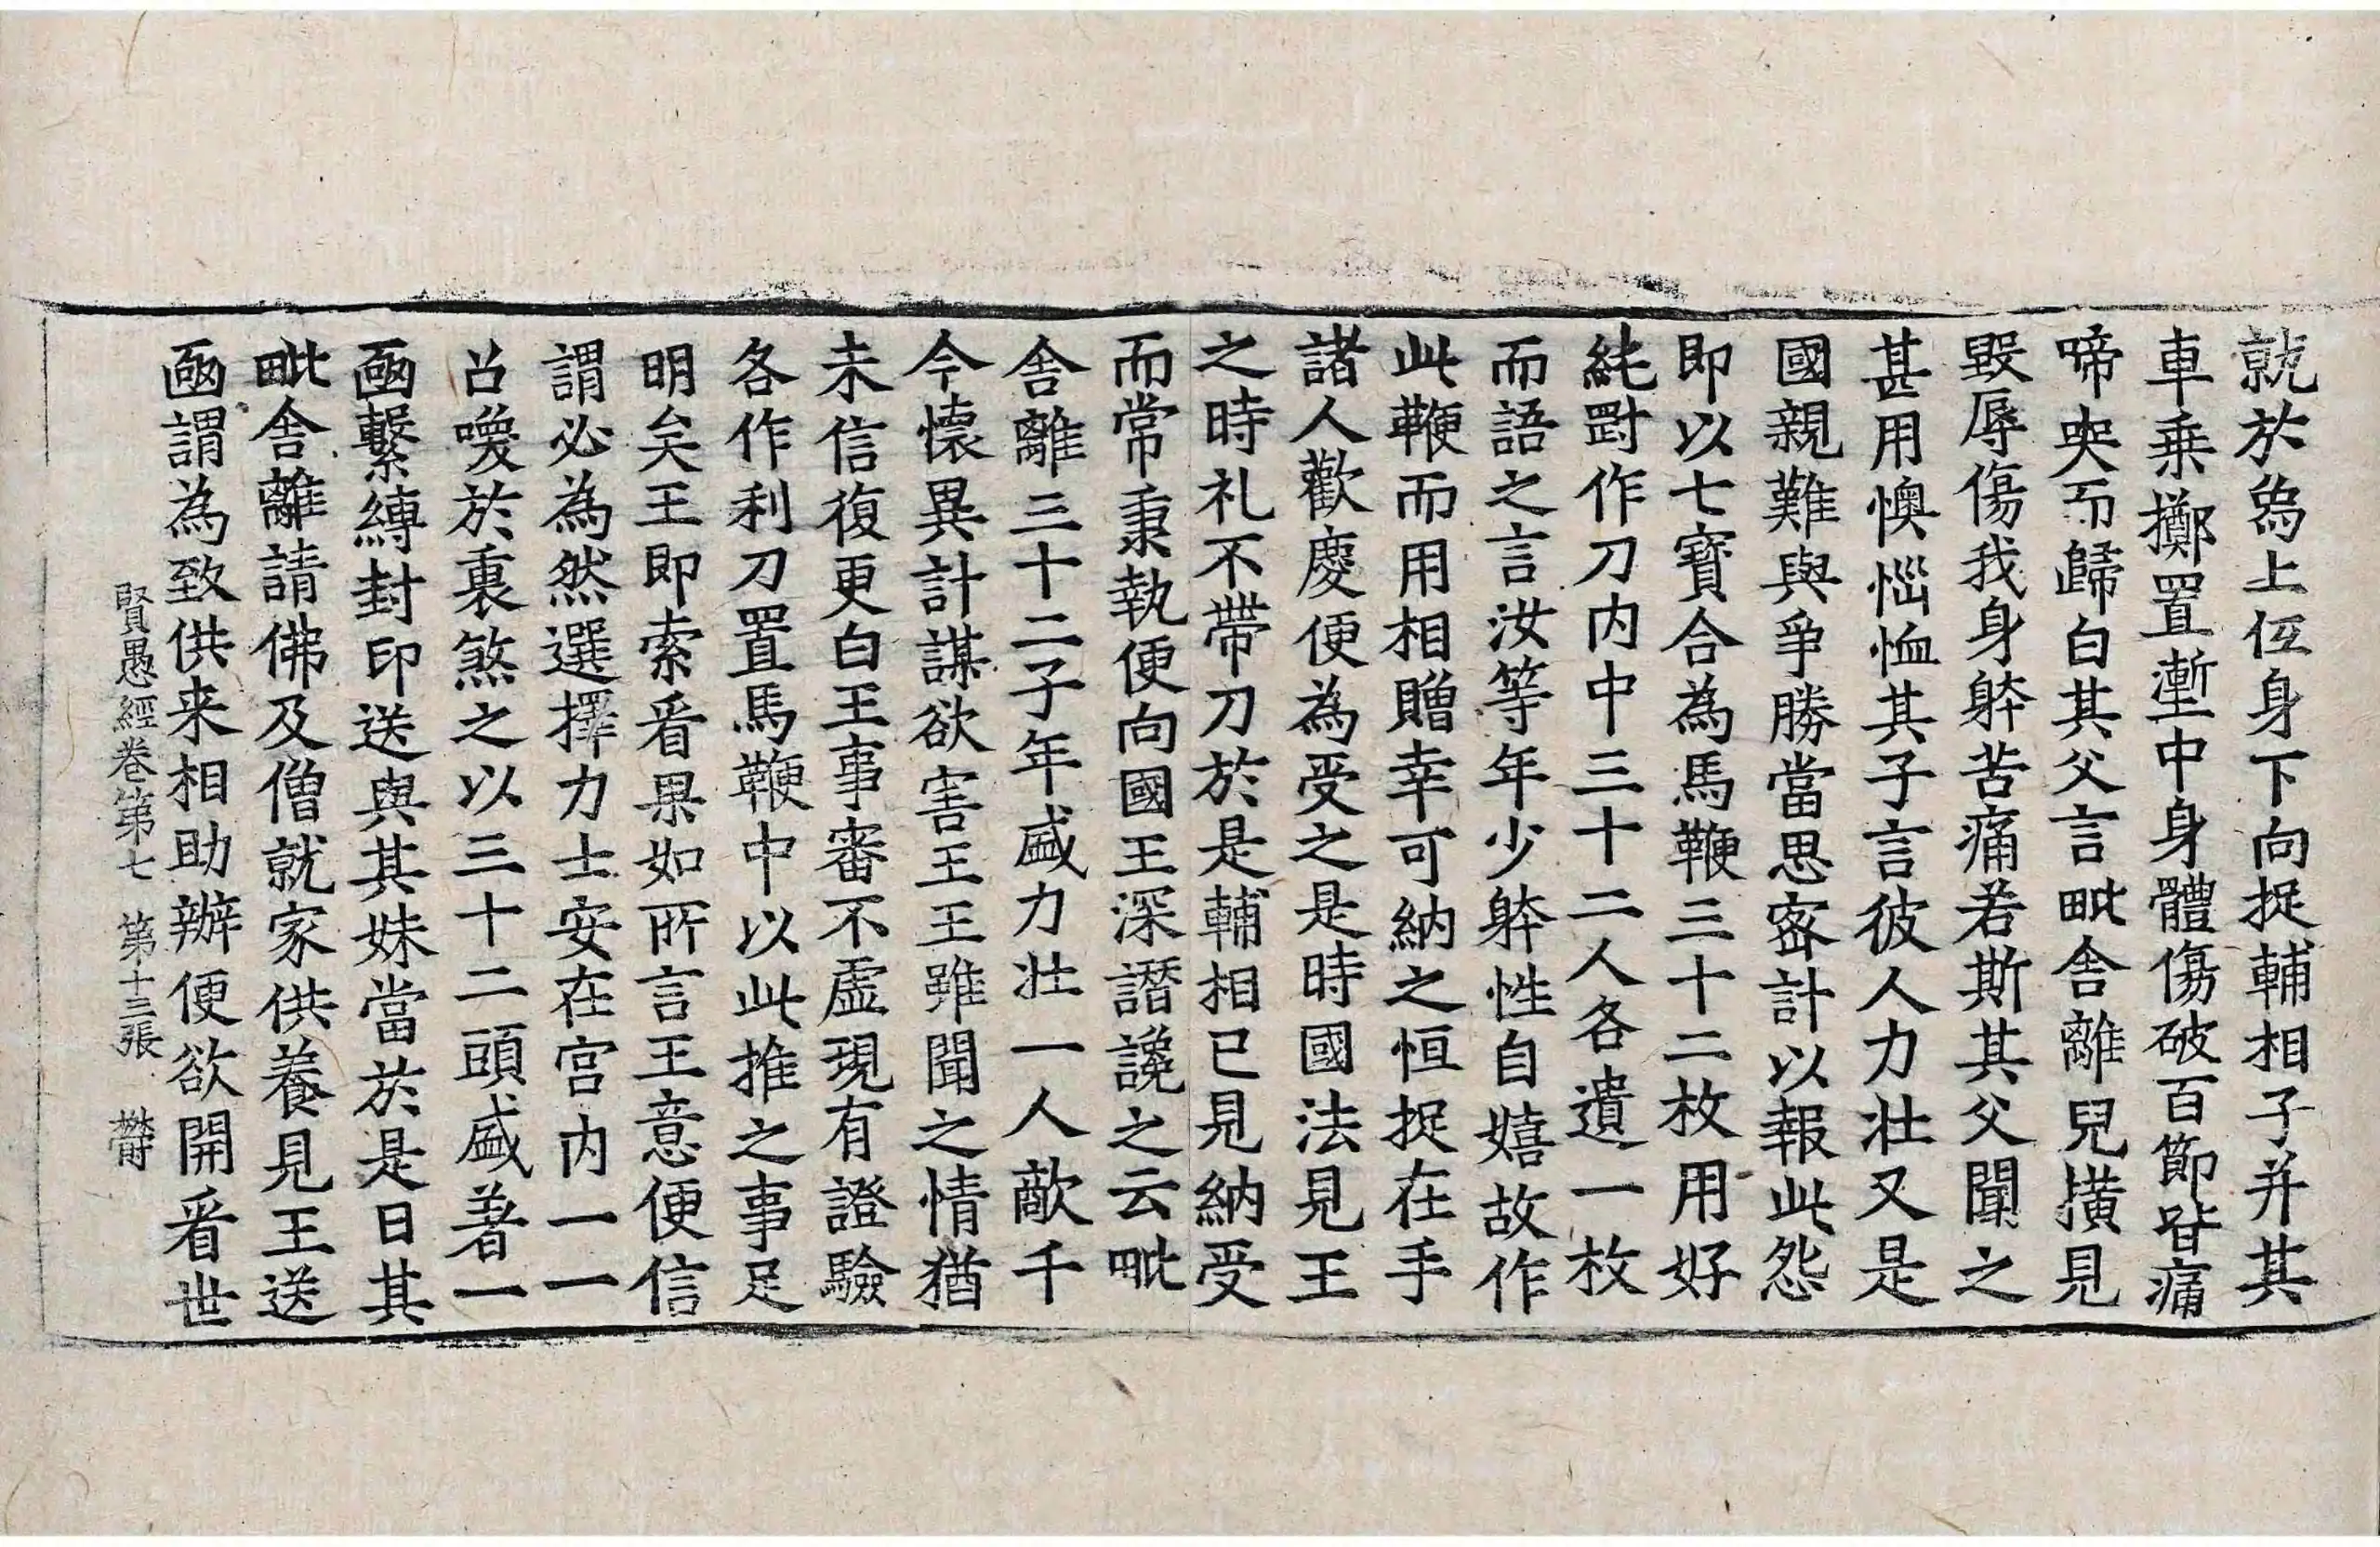 就於鳥上低身下向捉輔相子并其
車乗擲置壍中身體傷破百節皆痛
啼哭而歸白其父言毗舎離兒撗見
毀辱傷我身躰苦痛若斯其父聞之
甚用懊惱恤其子言彼人力壮又是
國親難與爭勝當思密計以報此怨
即以七寶合為馬鞭三十二枚用好
純㓻作刀内中三十二人各遺一枚
而語之言汝等年少躰性自嬉故作
此鞭而用相贈幸可納之恒捉在手
諸人歡慶便為受之是時國法見王
之時礼不帶刀於是輔相已見納受
而常秉執便向國王深譖讒之云毗
舎離三十二子年盛力壮一人敵千
今懷異計謀欲害王王雖聞之情猶
未信復更白王事審不虛現有證驗
各作利刀置馬鞭中以此推之事足
明矣王即索看果如所言王意便信
謂必為然選擇力士安在宫内一一
召喚於裏煞之以三十二頭盛著一
凾繫縛封印送與其妹當於是日其
毗舎離請佛及僧就家供養見王送
凾謂為致供来相助辦便欲開看世
賢愚經卷第七 第十三張 欝